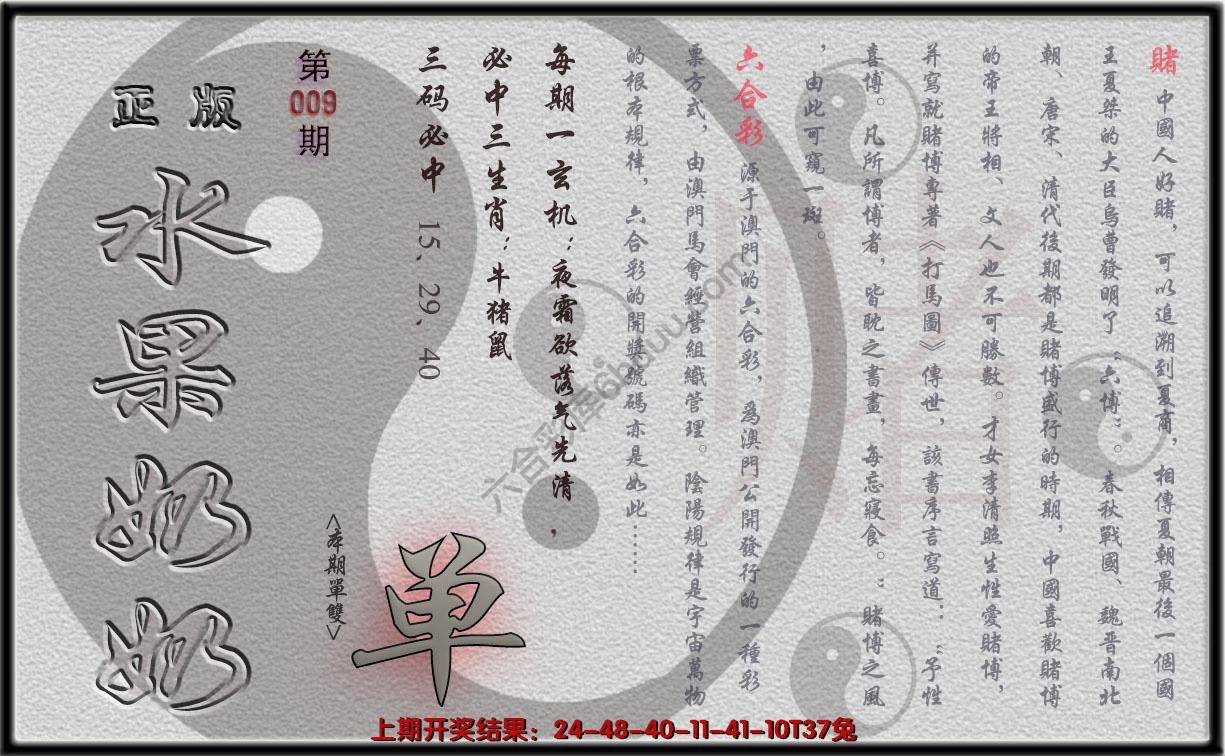 賭 中國人好賭，可以追溯到夏商，相傳夏朝最後一個國
王夏桀的大臣烏曹發明了“六博”。春秋戰國、魏晋南北
朝、唐宋、清代後期都是賭博盛行的時期，中國喜歡賭博
的帝王將相、文人也不可勝數。才女李清照生性愛賭博，
并寫就賭博專著《打馬圖》傳世，該書序言寫道：“予性
喜博。凡所謂博者，皆眈之書畫，每忘寢食。”賭博之風
，由此可窺一斑。
六合彩 源于澳門的六合彩，爲澳門公開發行的一種彩
票方式，由澳門馬會經營組織管理。陰陽規律是宇宙萬物
的根本規律，六合彩的開獎號碼亦是如此……
每期一玄机：夜霜欲落气先清，
必中三生肖：牛猪鼠
三码必中 15、29、40
第
009
期
正版
水果奶奶
<本期單雙>
单
賭
六合彩库6buuu.com
上期开奖结果：24-48-40-11-41-10T37兔